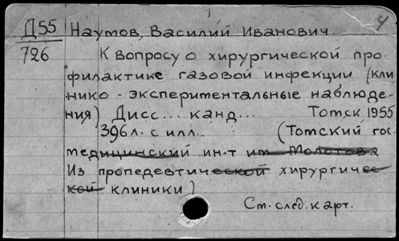 Д55 Наумов, Василий Иванович. 4
726 К вопросу о хирургической про-
филактике газовой инфекции (кли
нико - экспериментальные наблюде-
ния) Дисс... канд... Томск 1955
396 л. с илл. (Томский гос.
медицинский ин-т им Молотова
Из пропедевтической хирургичес-
кой клиники)
См. след. карт.